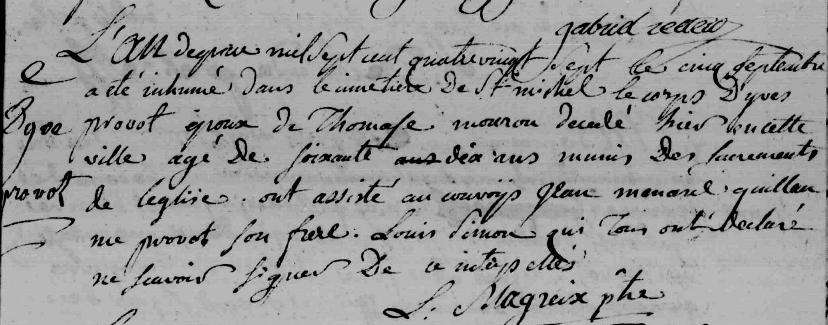 gabriel
L'an de grace mil sept cent quatre vingt sept le cinq septembre
a été inhumé dans le cimetiere de St michel le corps D'yves
provot époux de Thomase mourou decedé hier en cette
ville agé De soixante ans dix ans munis Des sacrements
de l'eglise. ont assisté au convoys jean menard guillau
me provot son frere. Louis Simon qui Tous ont Declaré
ne scavoir signer De ce interpellés
Yves
provot
L. Magreix ptre